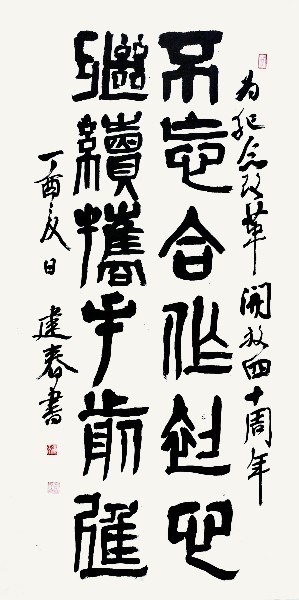 为纪念改革開放四十周年
不忘合作初心
繼續攜手前進
丁酉夏日 建春書